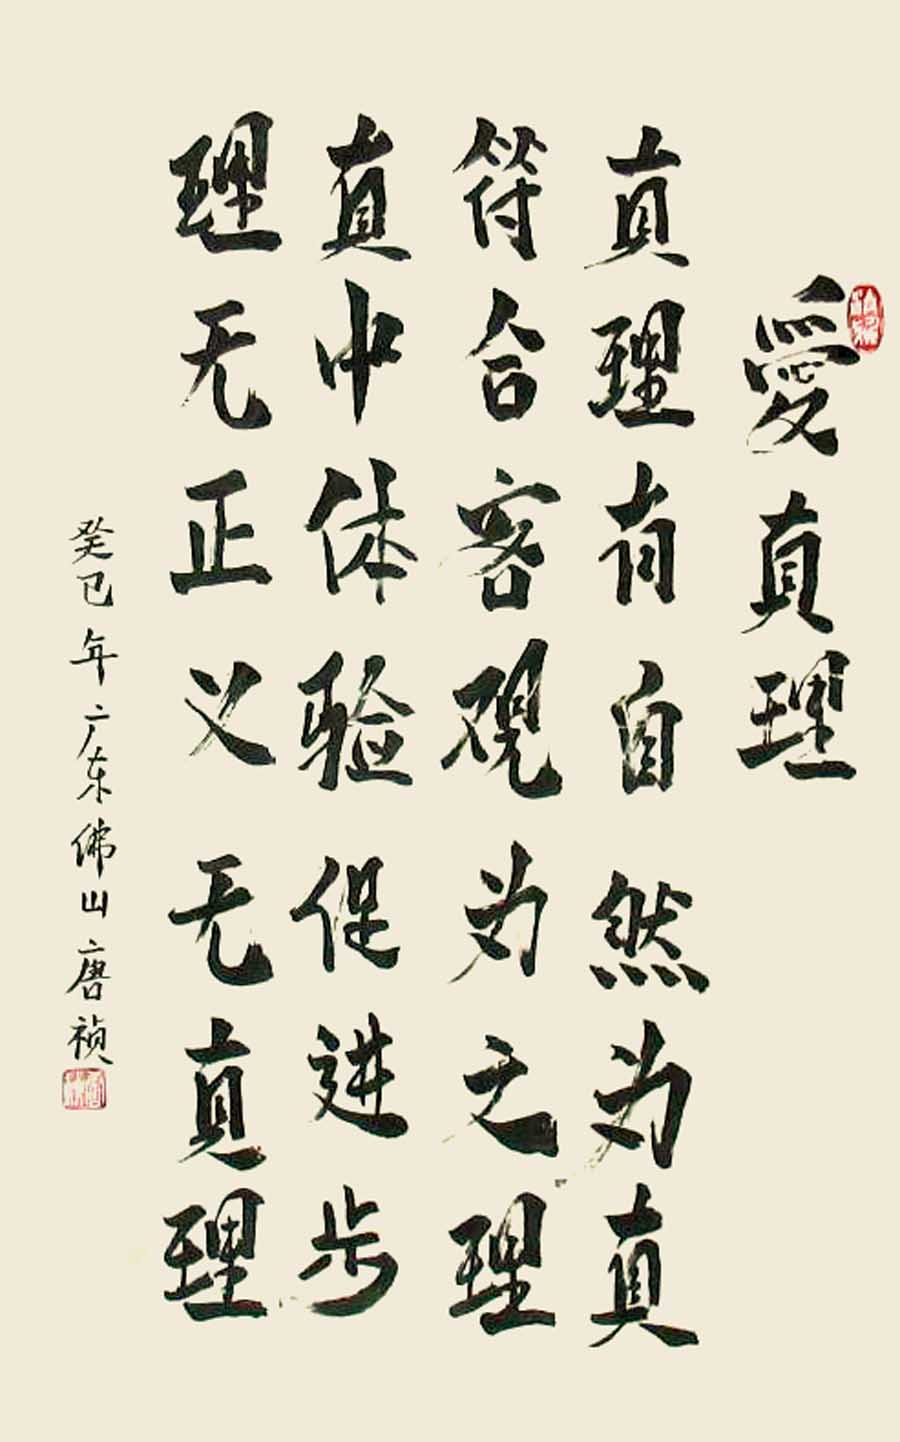 愛真理
真理有自然为真
符合客观为之理
真中体验促进步
理无正义无真理
癸巳年广东佛山唐祯